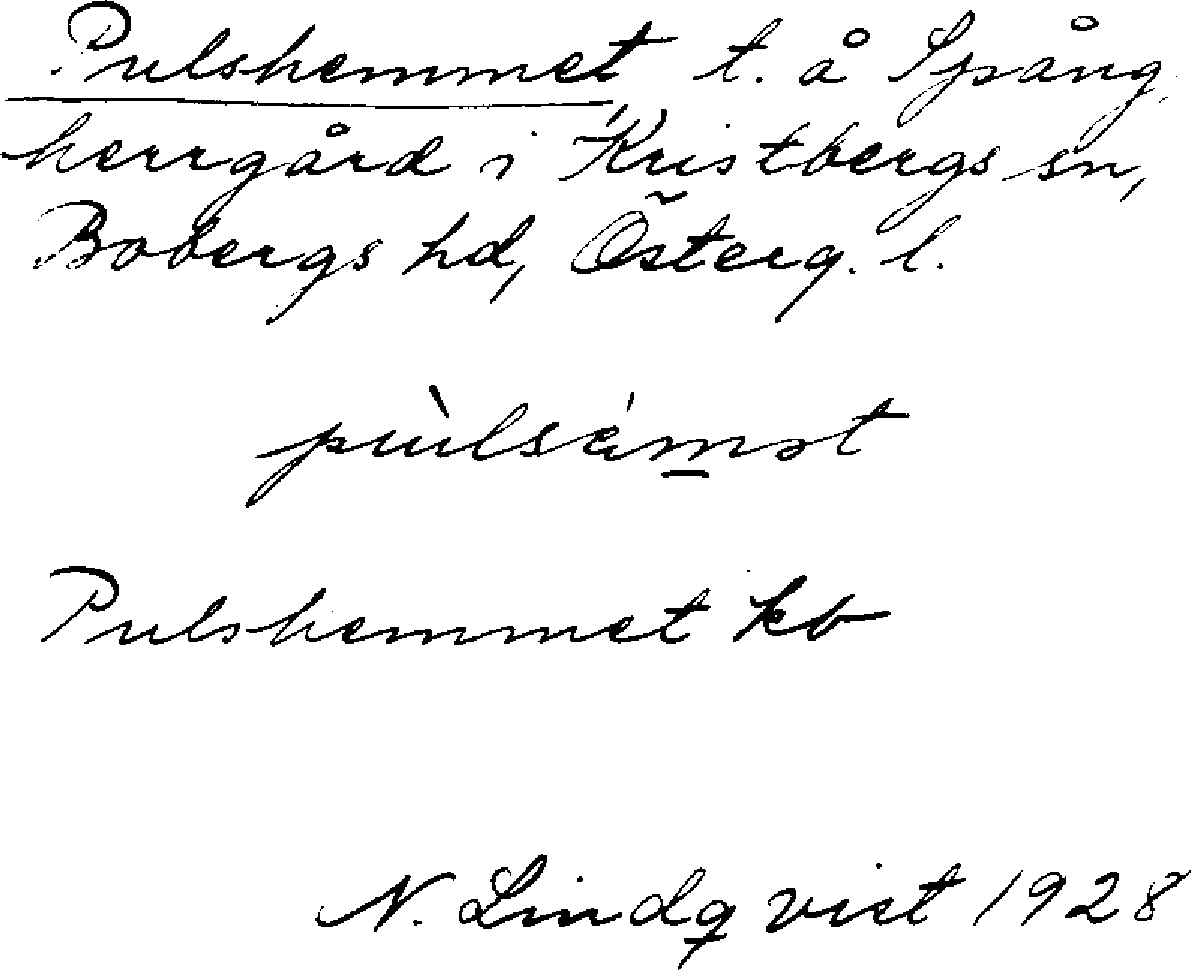 Pulshemmet t. å Spång,
herrgård i Kristbergs sn,
Bobergs hd, Österg. l.
pùlsémət
Pulshemmet kb
N. Lindqvist 1928